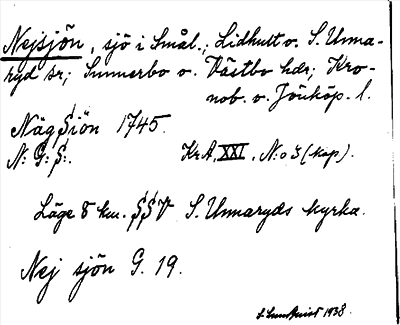 Nejsjön, sjö i Smål.; Lidhult o. S. Unna-
ryd sr; Sunnerbo o. Västbo hdr; Kro-
nob. o. Jönköp. l.
Nägsiön 1745.
N: G: S:. KrA, XXI, N:o 3 (kop).
Läge 8 km. SSV S. Unnaryds kyrka.
Nej sjön G. 19.
1938.